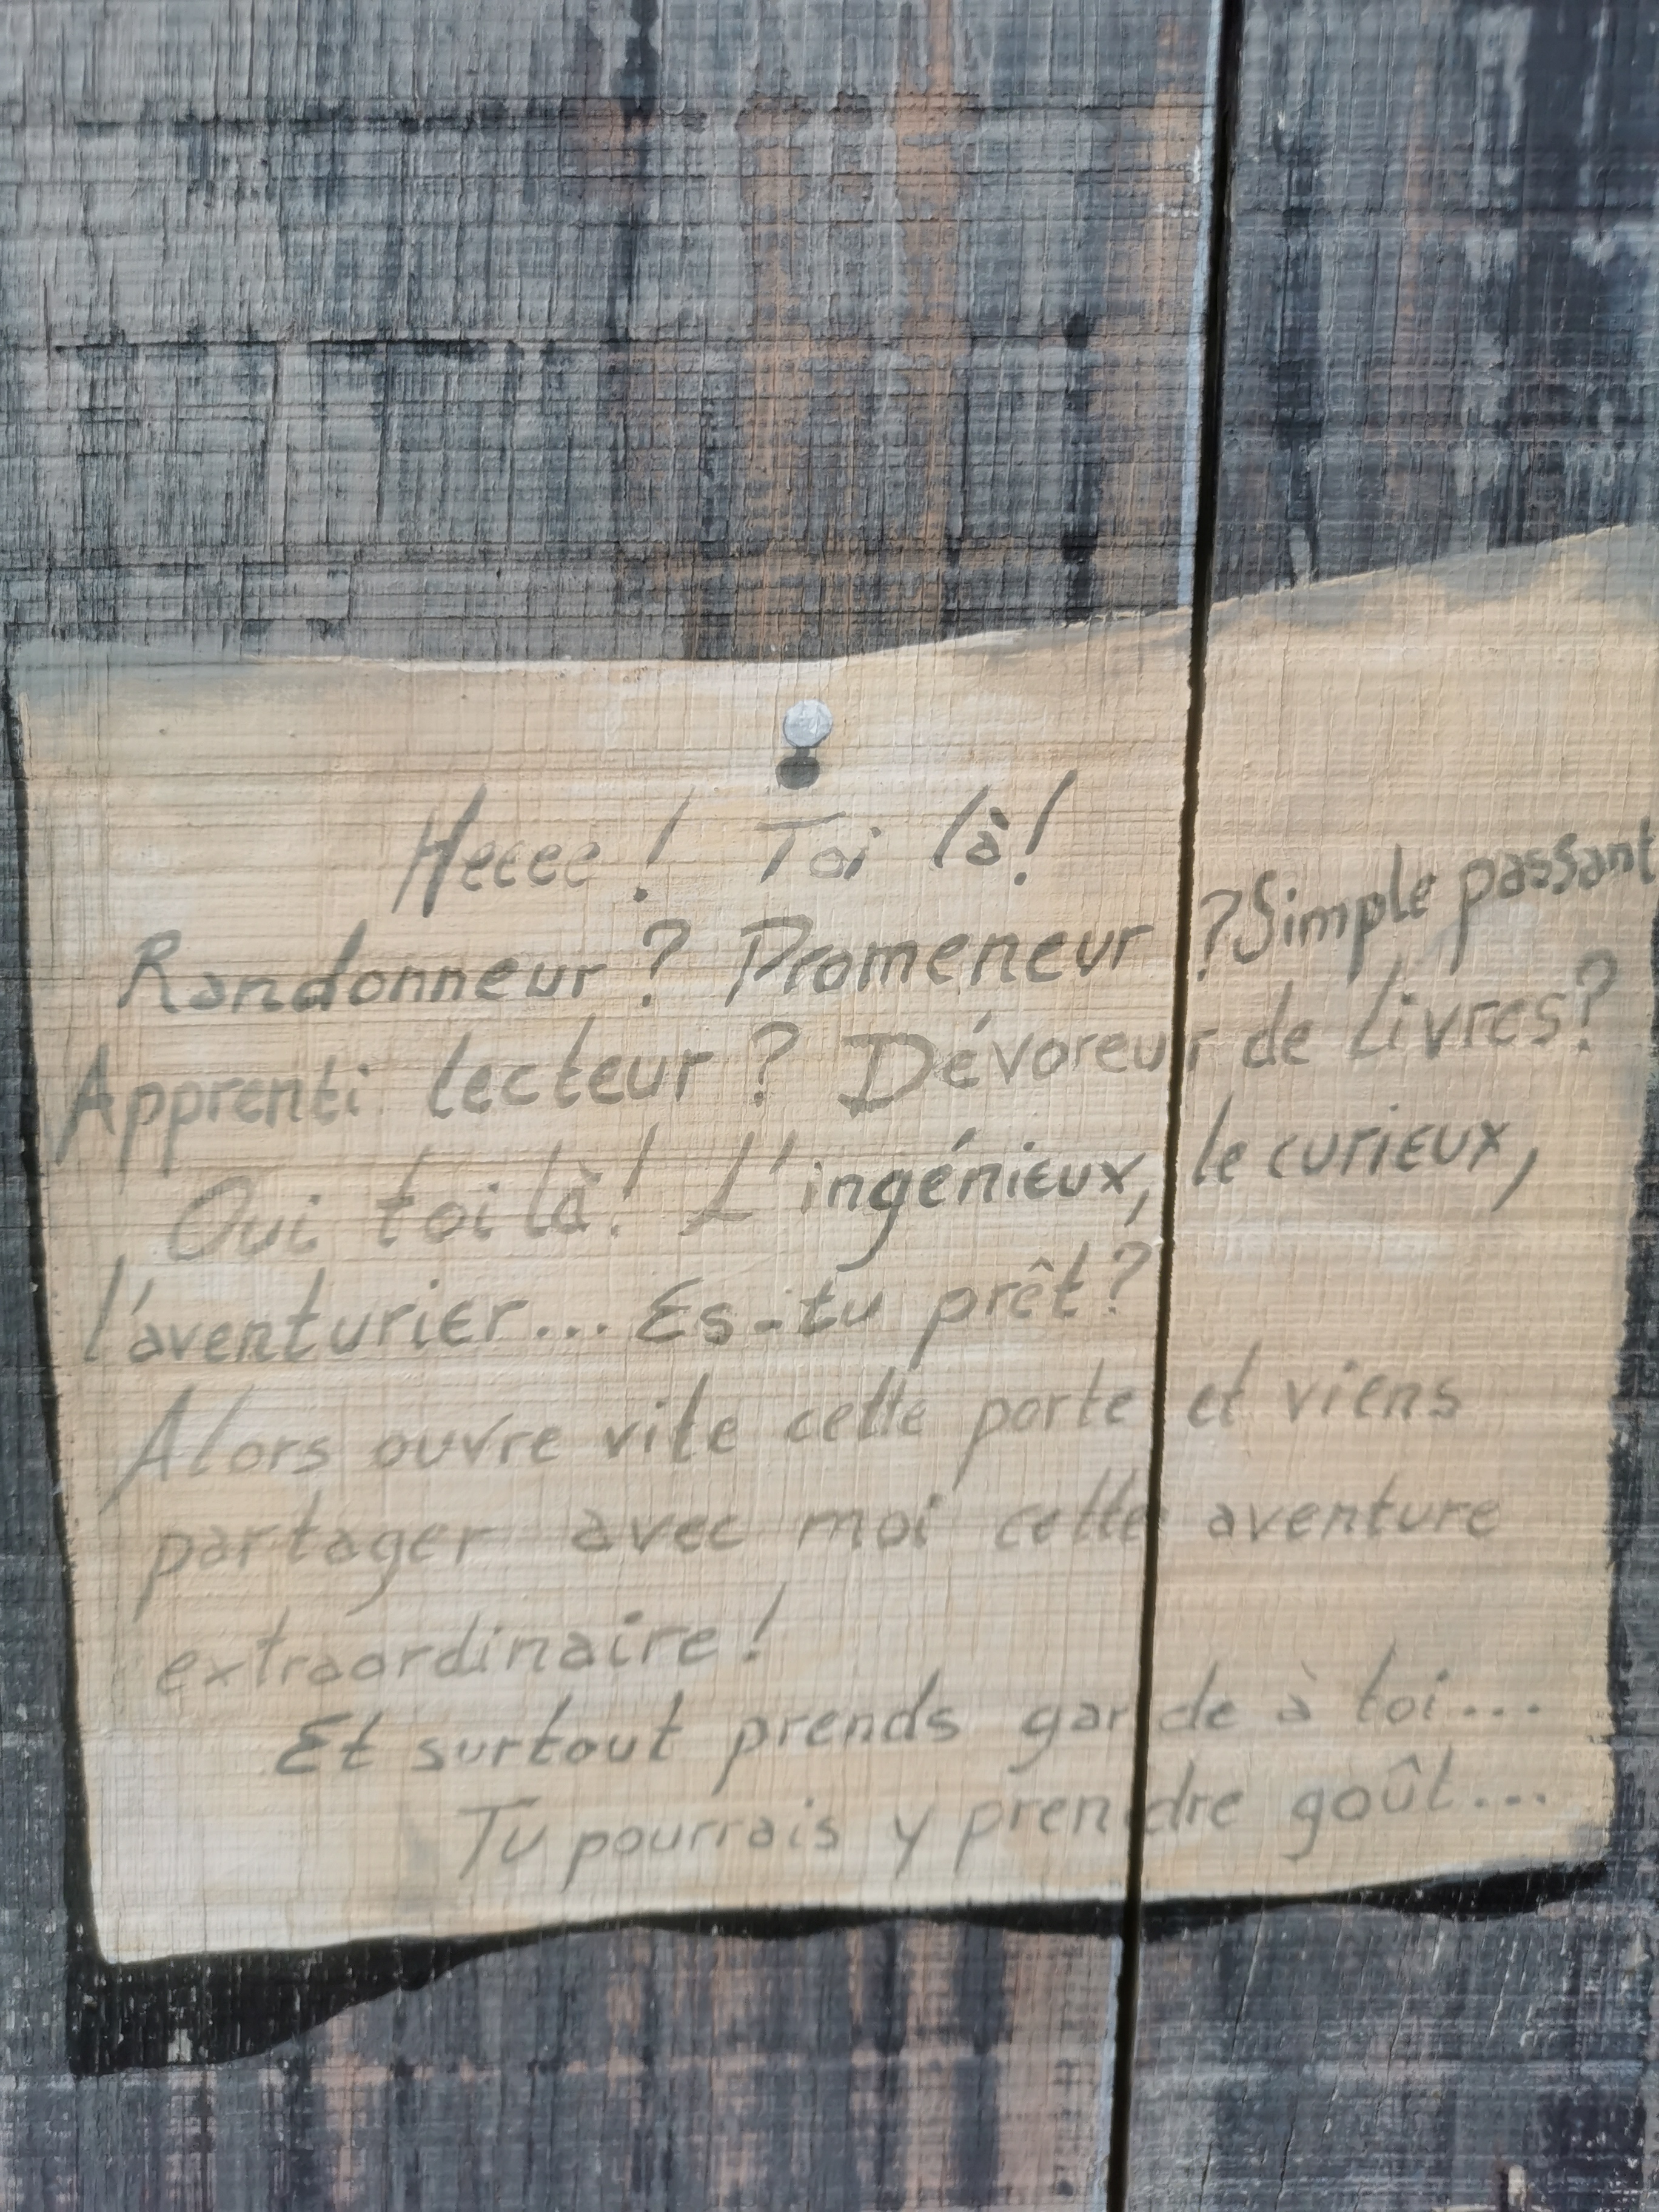 Heeee ! Toi là !
Randonneur ? Promeneur ? Simple passant
Apprenti lecteur ? Dévoreur de livres ?
Oui toi là ! L'ingénieux, le curieux,
l'aventurier... Es-tu prêt ?
Alors ouvre vite cette porte et viens
partager avec moi cette aventure
extraordinaire !
Et surtout prends garde à toi...
Tu pourrais y prendre goût...